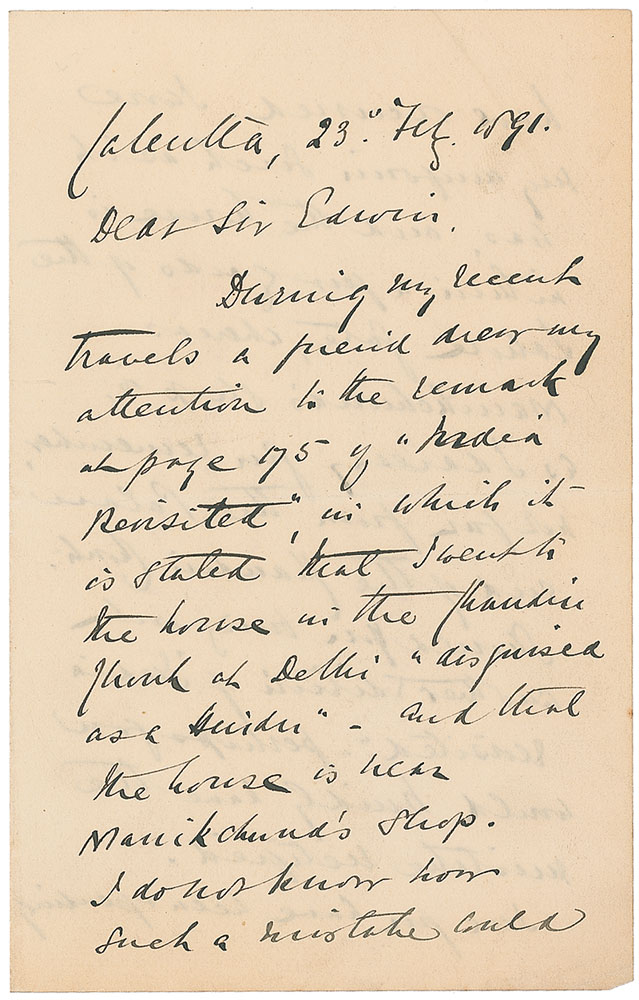 Calcutta, 23rd. Feb. 1891.
Dear Sir Edwin.
During my recent
travels a friend drew my
attention to the remark
at page 175 of "India
Revisited", in which it
is stated that I went to
the house in the Chandni
Chouk at Delhi "disguised
as a Hindu" - and that
the house is near
Manikchund's shop.
I do not know how
such a mistake could